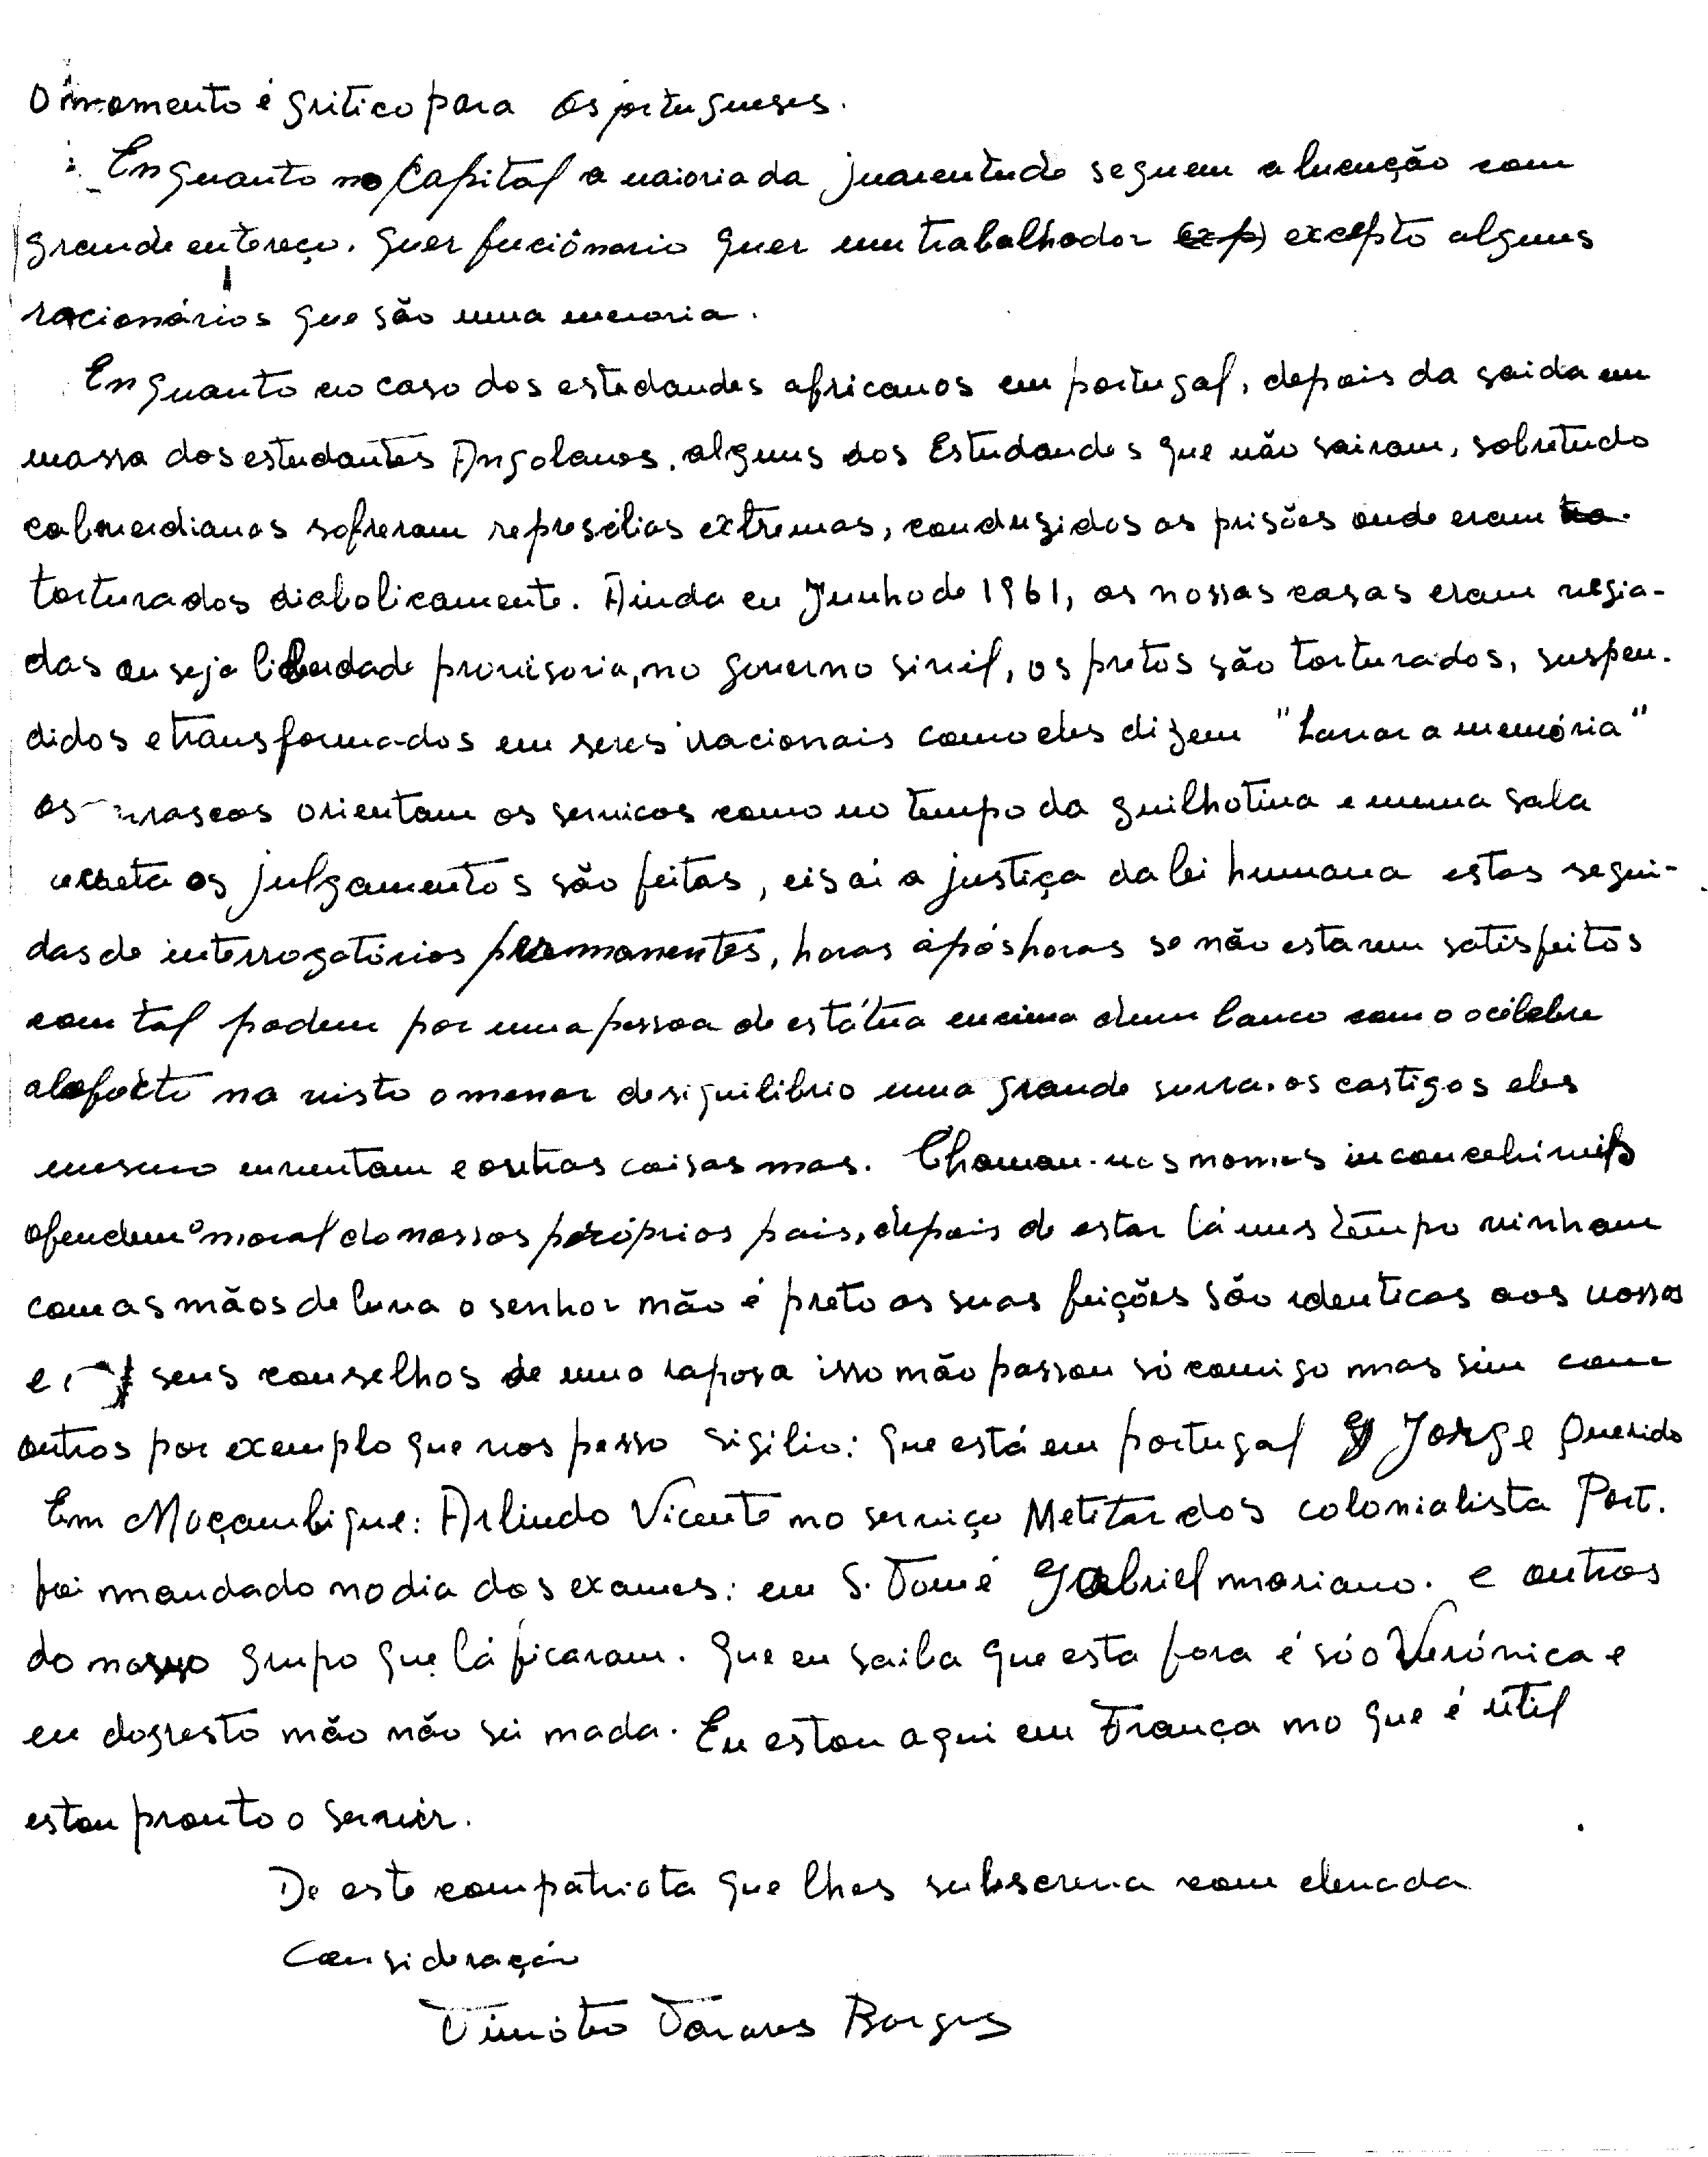 O momento é gritico para os portugueses.
Enquanto no Capital a maioria da juventude seguem a lucução com
grande entereço. quer fucionário quer um trabalhador excepto alguns
racionários que são uma menoria.
Enquanto no caso dos estudandes africanos em portugal, depois da saida em
massa dos estudantes Angolanos, alguns dos Estudandes que não sairam, sobretudo
caboverdianos sofreram represálias extremas, conduzidos as prisões onde eram
torturados diabolicamente. Ainda em Junho de 1961, as nossas casas eram vegia-
das ou seja liberdade provisoria, no governo sivil, os pretos são torturados, suspen-
didos e transformados em seres iracionais como eles dizem "Lavar a memória"
os carascos orientam os servicos como no tempo da guilhotina e numa sala
secreta os julgamentos são feitas, eis ai a justiça da lei humana estas segui-
das de interrogatórios permanentes, horas após horas se não estarem satisfeitos
com tal podem por uma pessoa de estátua encima dum banco com o célebre
alofócto na visto o menor desiquilibrio uma grande surra. os castigos eles
mesmo enventam e outras coisas mas. Chamam-nos nomes inconcebiveis
ofendem o moral do nossos próprios pais, depois de estar lá uns tempo vinham
com as mãos de luva o senhor não é preto as suas feições são identicas aos nossos
e seus conselhos de uma raposa isso não passou só comigo mas sim com
outros por exemplo que vos pesso sigilio: que está em portugal Jorge Querido
Em Moçambique: Arlindo Vicente no serviço Metitar dos colonialista Port.
foi mandado no dia dos exames: em S. Tomé Gabriel mariano. e outros
do nosso grupo que lá ficaram. Que eu saiba que esta fora é só o Verónica e
eu do resto não não sei nada. Eu estou aqui em França no que é útil
estou pronto o servir.
De este compatriota que lhes subscreva com elevada
Consideração
Timóteo Tavares Borges